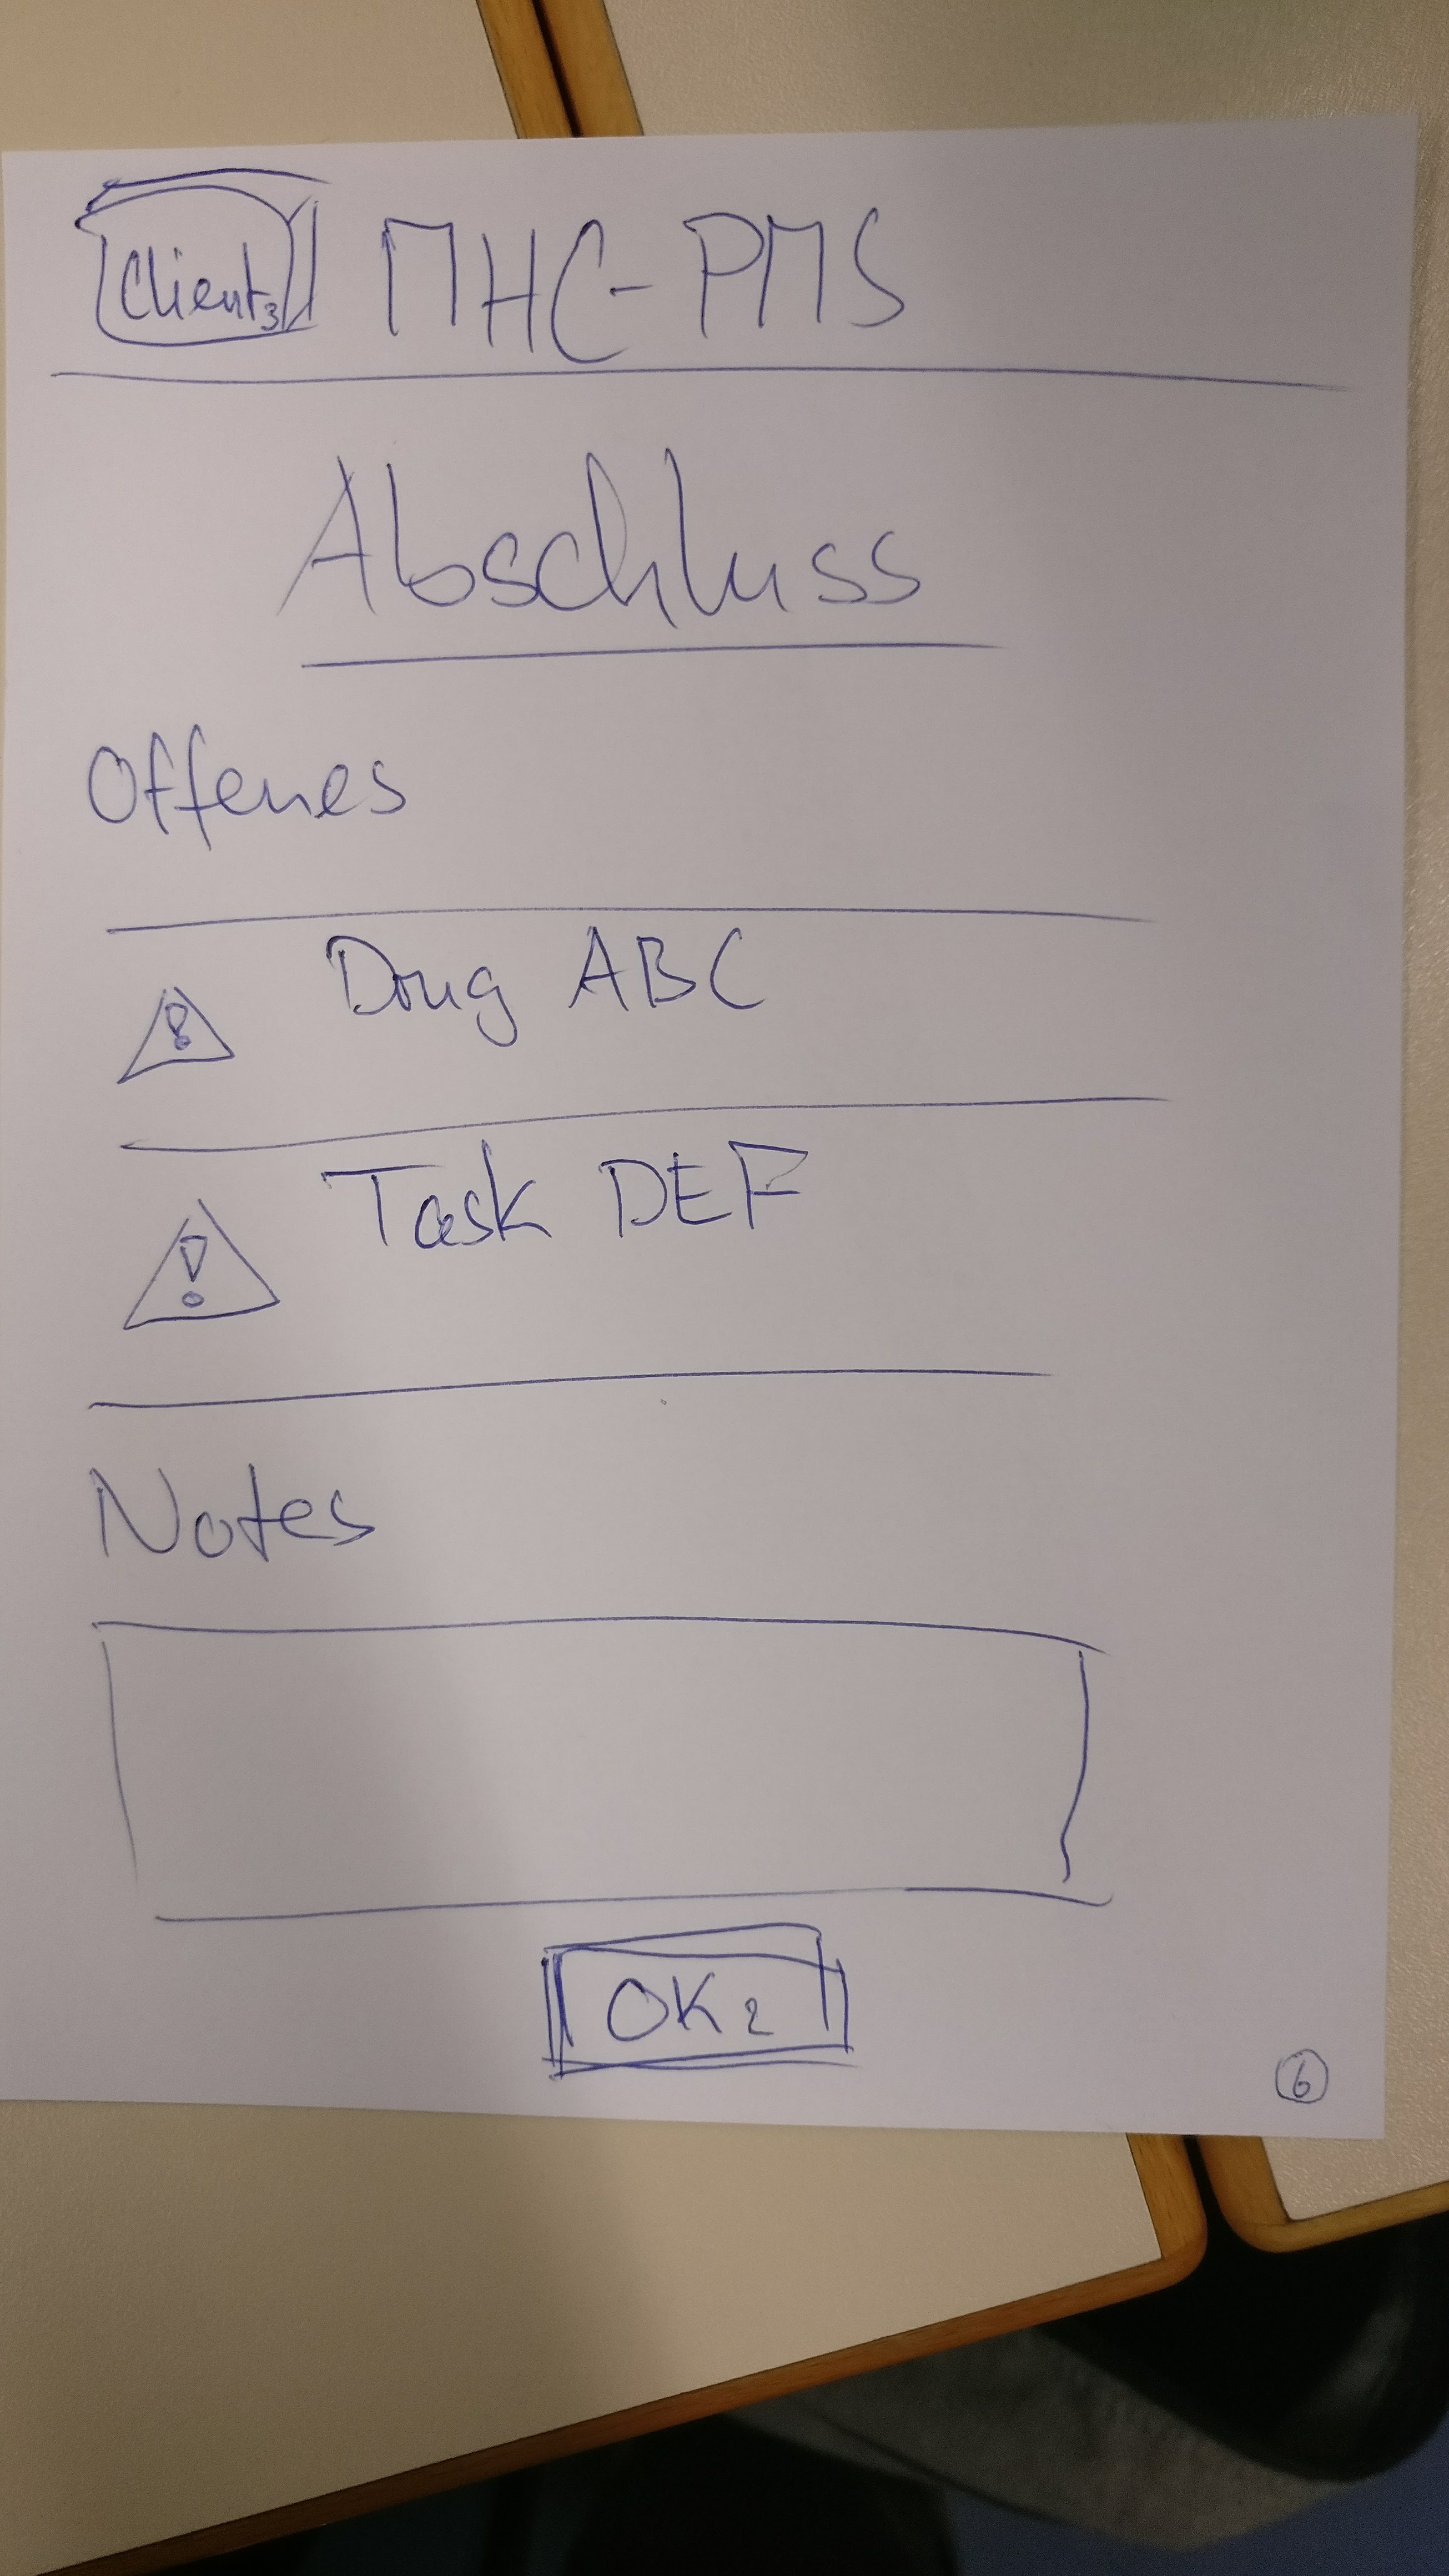 Client 3 MHC-PMS
Abschluss
Offenes
Drug ABC
Task DEF
Notes
OK 2
6